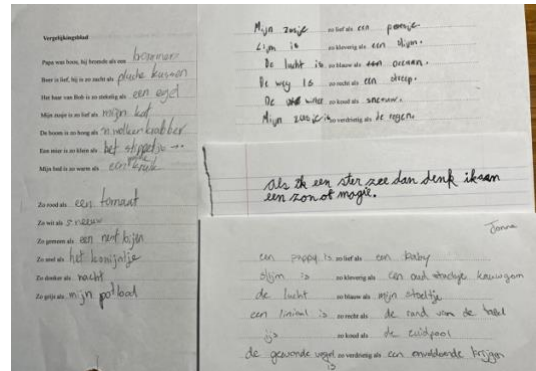 Vergelijkingsblad
Papa was boos, hij bromde als een brommer
Beer is lief, hij is zo zacht als pluche kussen
Het haar van Bob is zo stekelig als een egel
Mijn zusje is zo lief als mijn kat
De boom is zo hoog als 'n wolkenkrabber
Een mier is zo klein als het stippeltje ...
Mijn bed is zo warm als een kruik
Zo rood als een tomaat
Zo wit als sneeuw
Zo gemeen als een nest bijen
Zo snel als het konijntje
Zo donker als nacht
Zo grijs als mijn potlood
Mijn zusje zo lief als een poesje
Lijm is zo kleverig als een slijm.
De lucht is zo blauw als een oceaan.
De weg is zo recht als een streep.
De water zo koud als sneeuw.
Mijn zusje is zo verdrietig als de regen.
als ik een ster zee dan denk ik aan
een zon of magie.
een puppy is zo lief als een baby
slijm is zo kleverig als een oud kauwgom
de lucht zo blauw als mijn stoeltje
een liniaal is zo recht als de rand van de tafel
ijs zo koud als de zuidpool
de gewonde vogel is zo verdrietig als een